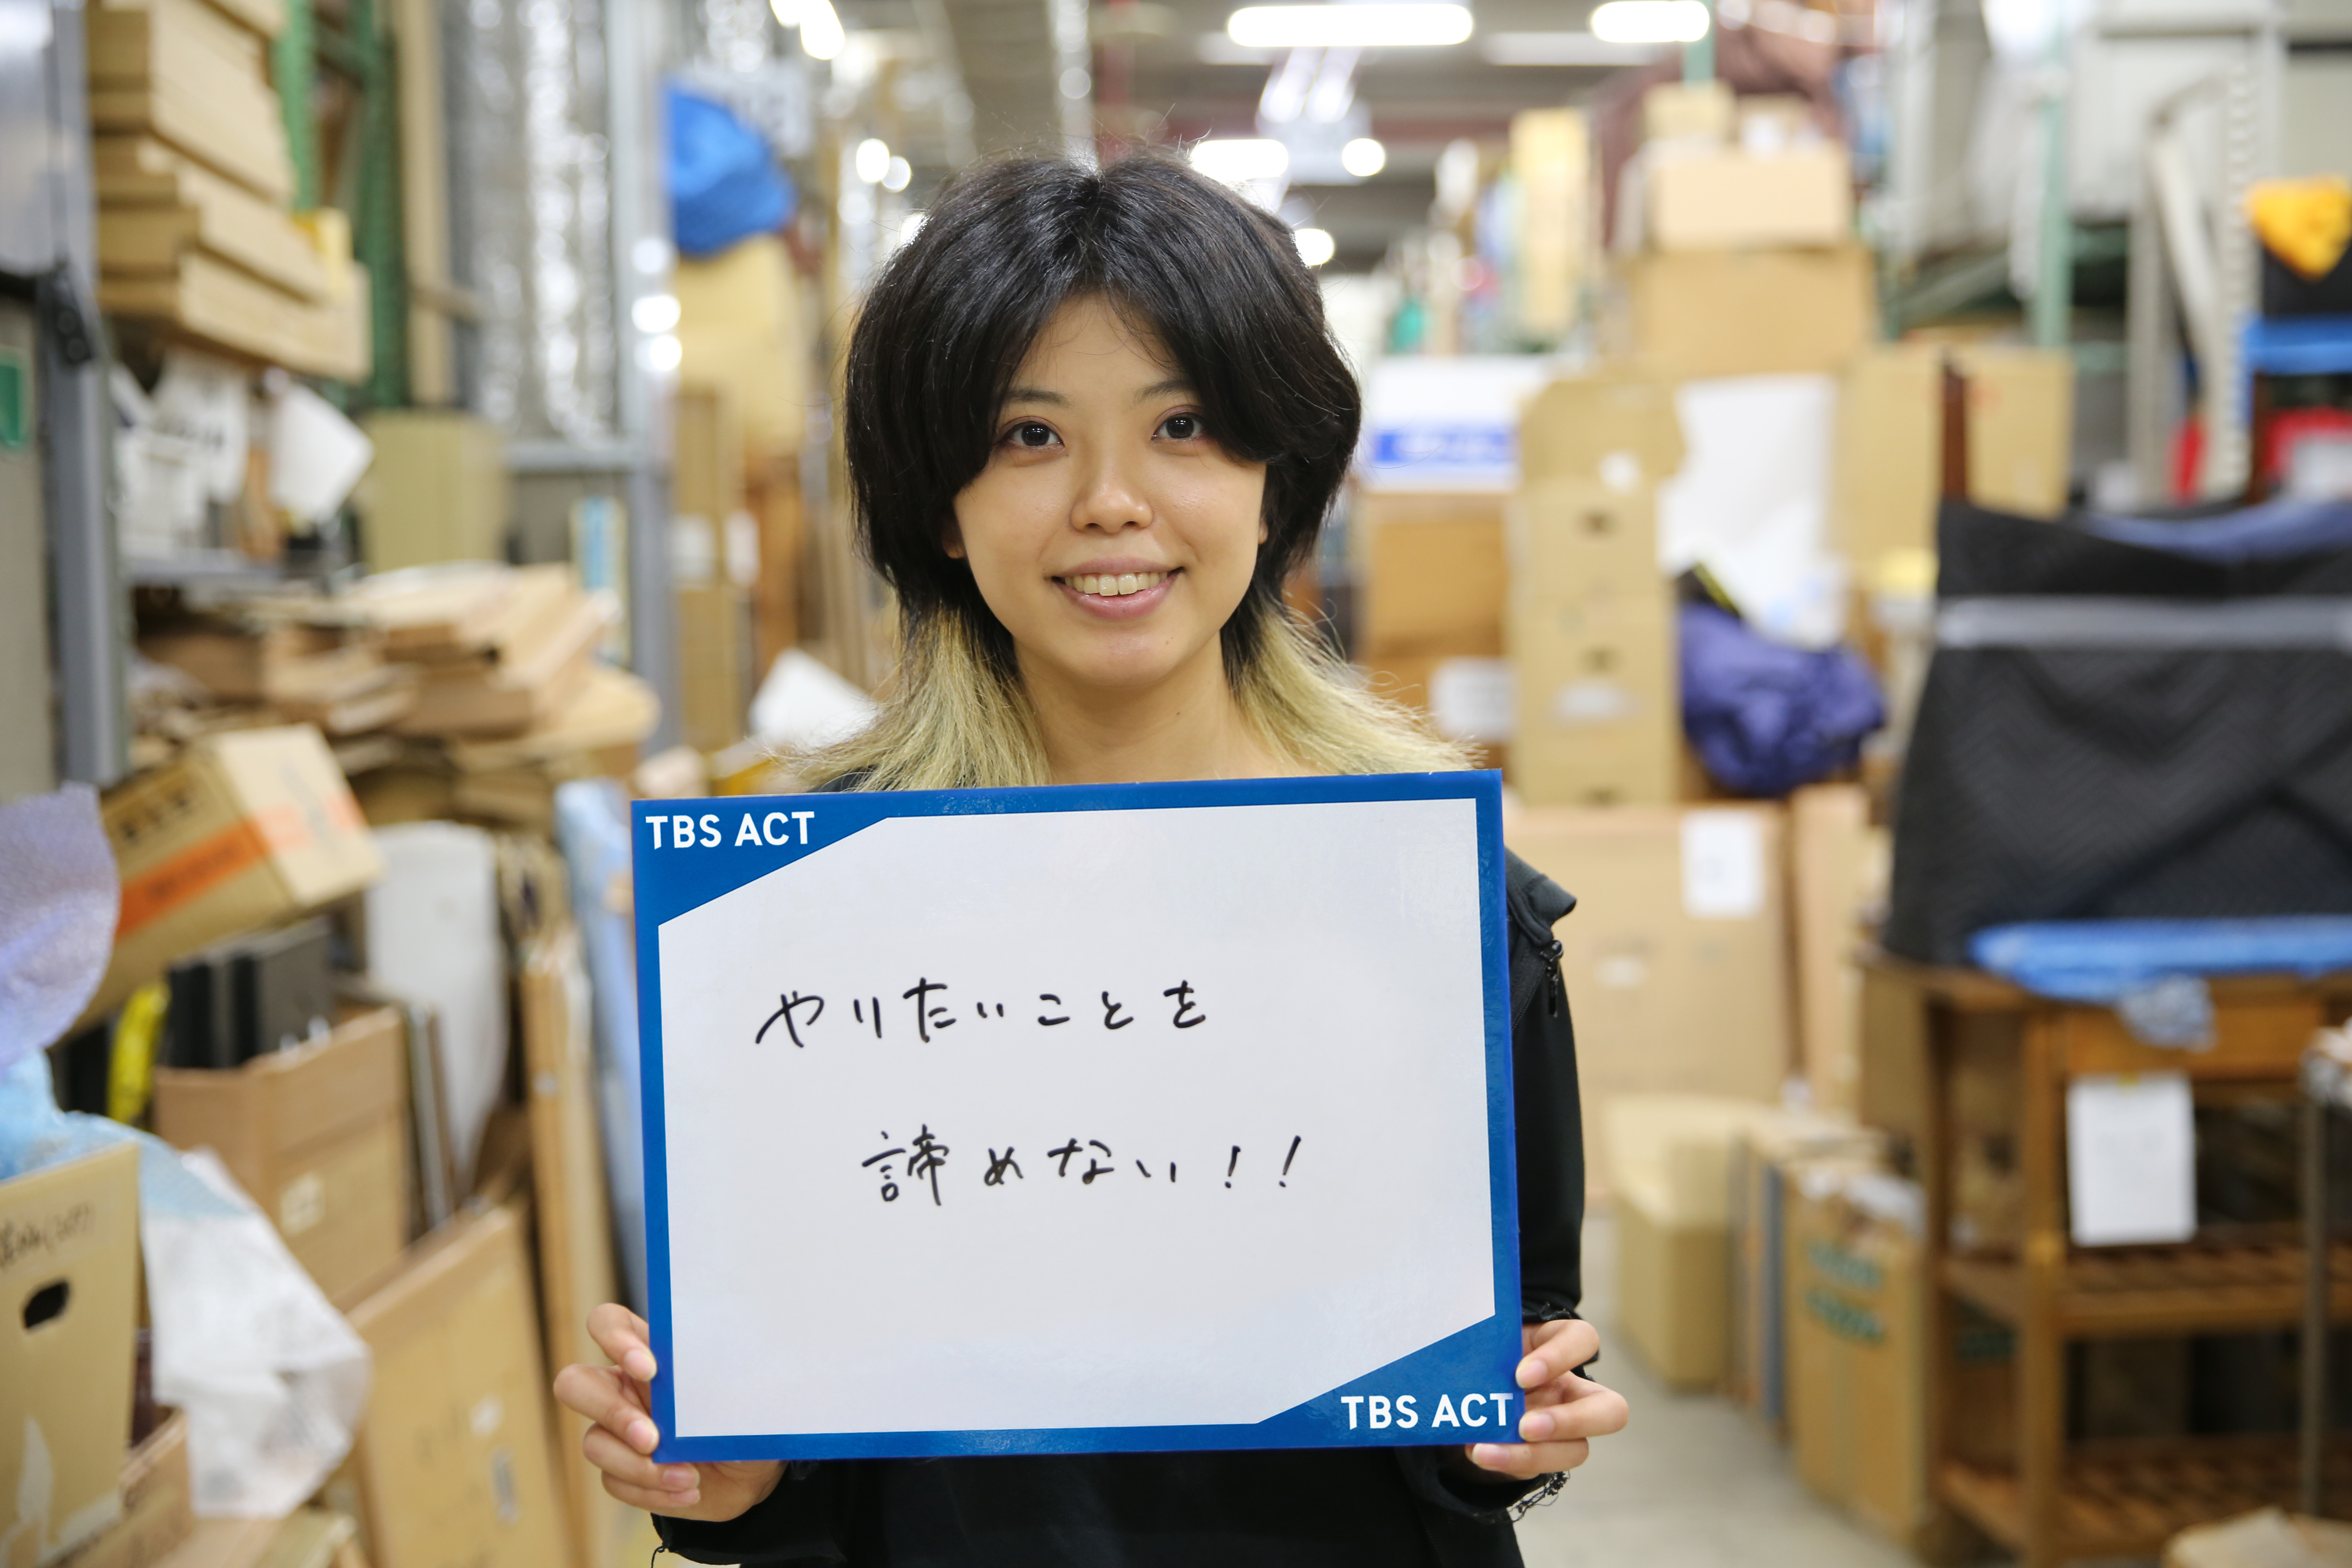 TBS ACT
やりたいことを
諦めない！！
TBS ACT